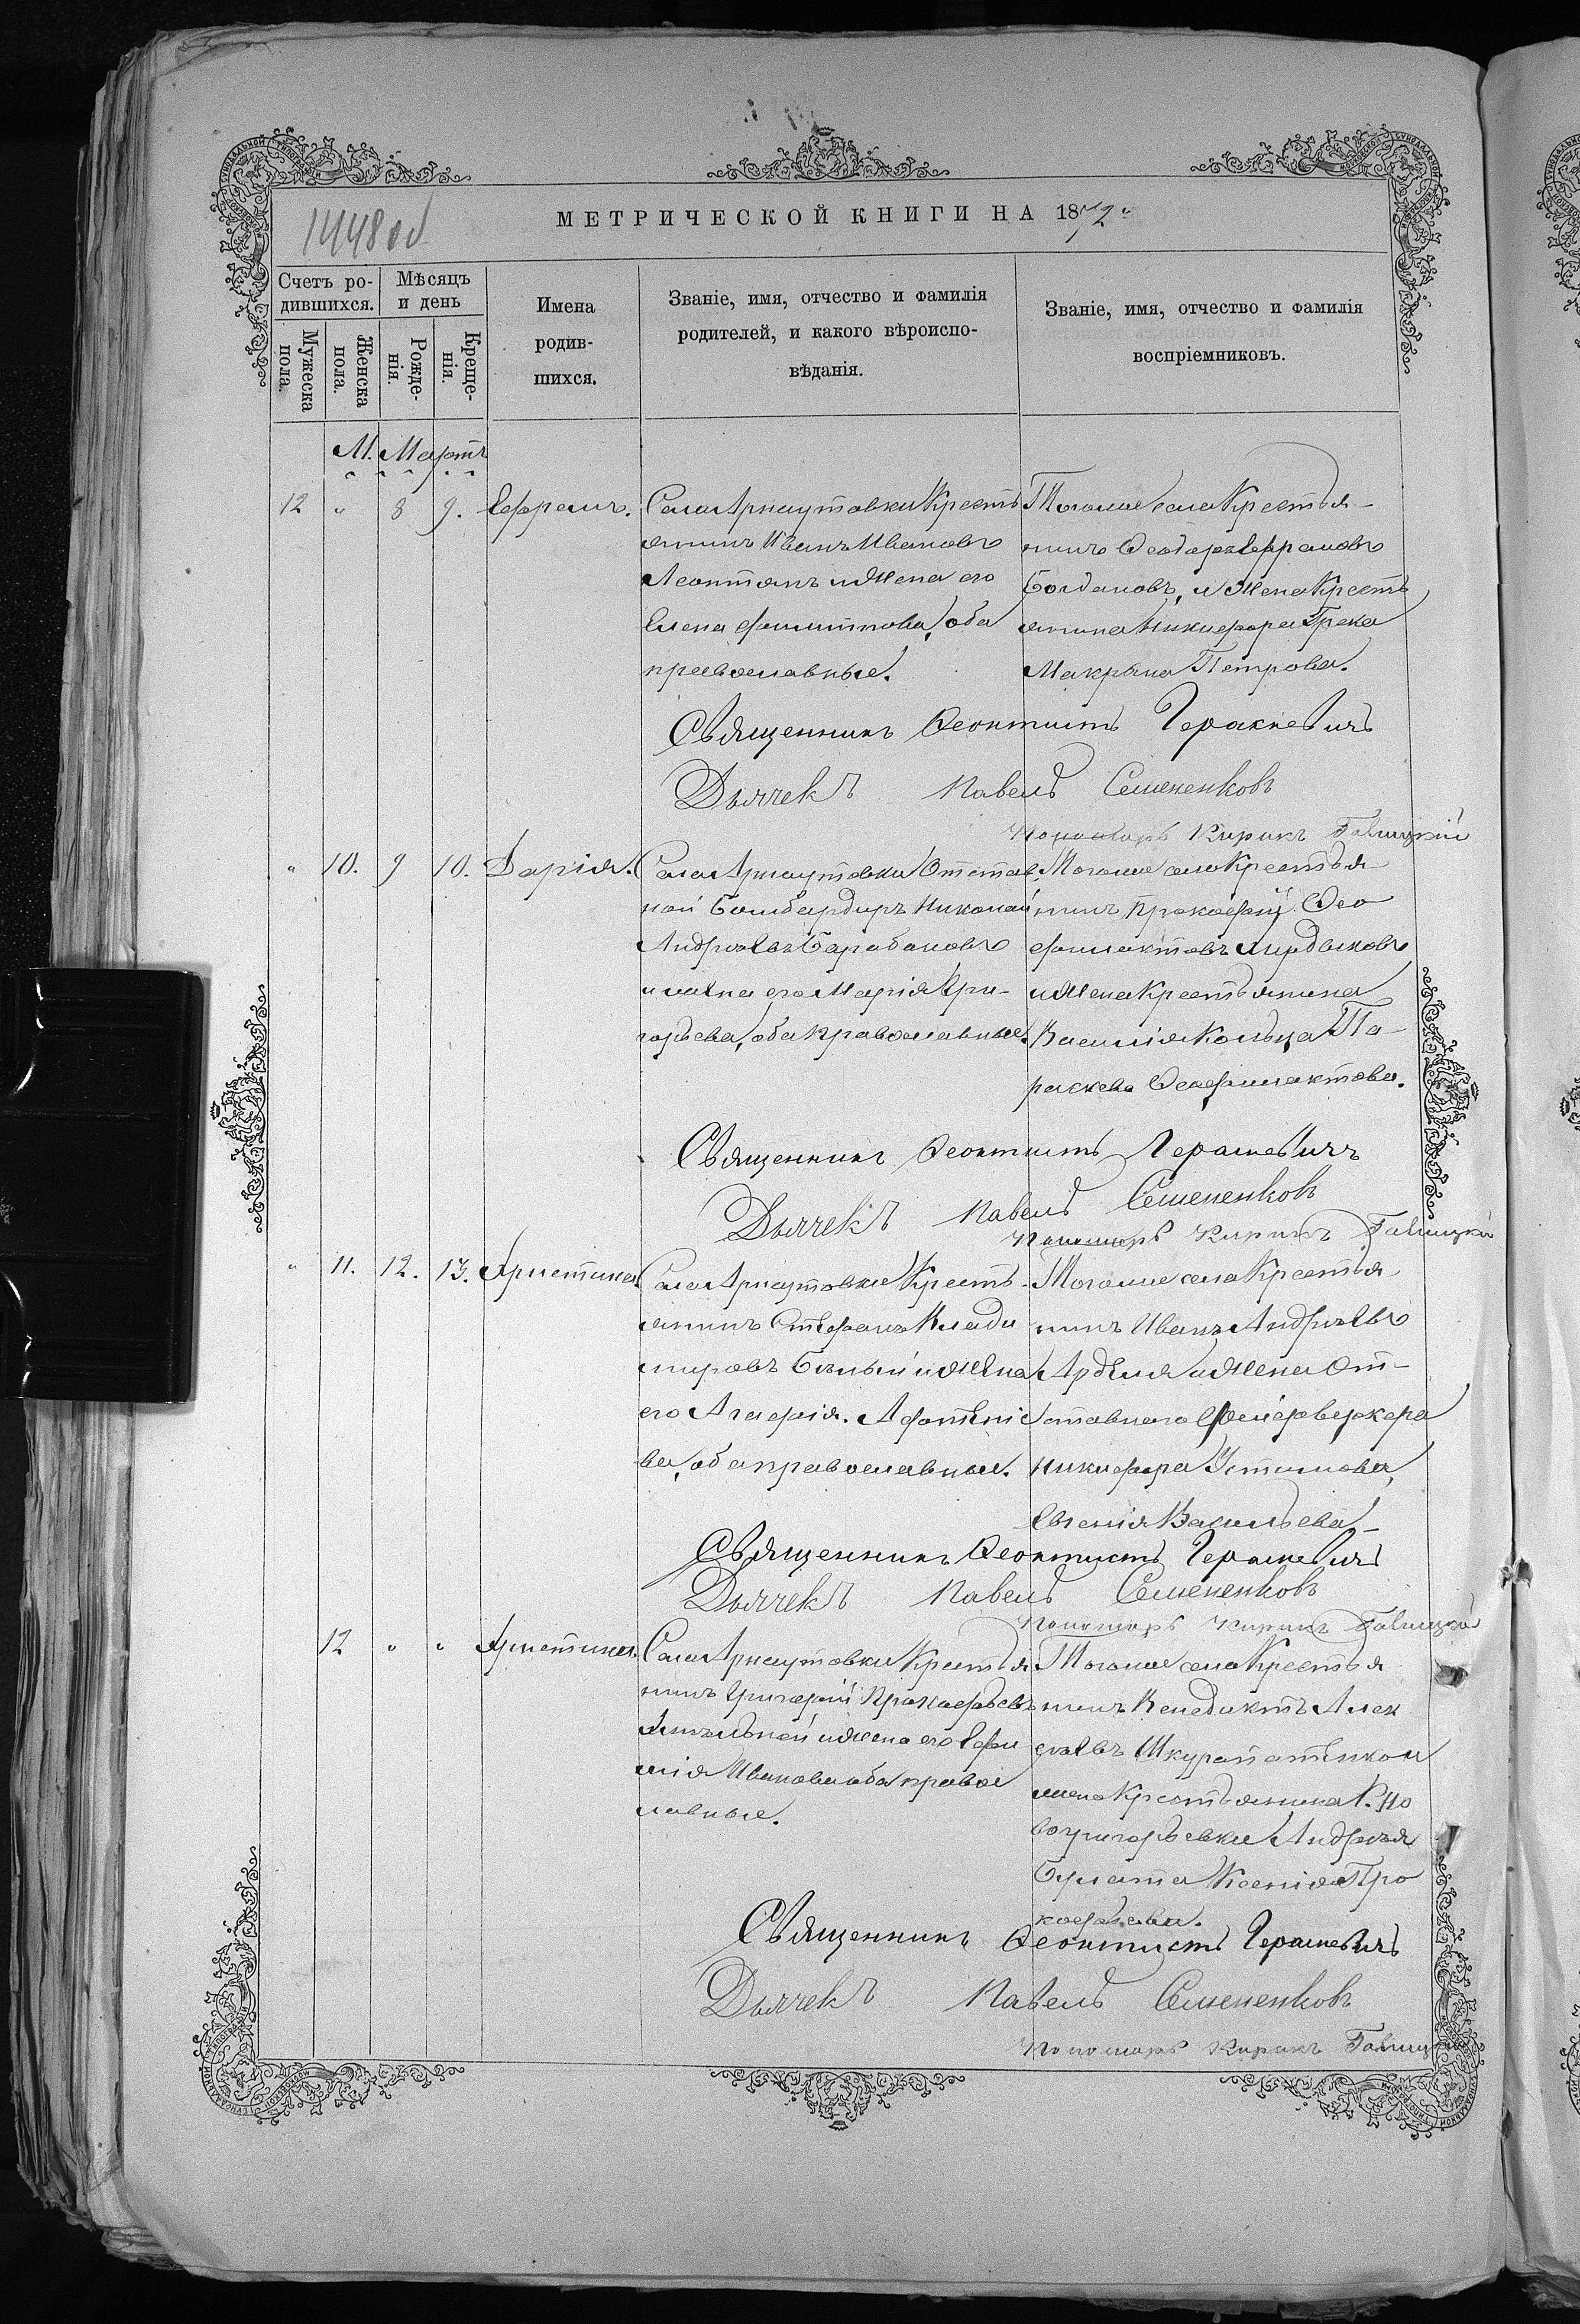 1448 об
МЕТРИЧЕСКОЙ КНИГИ НА 1872
Счетъ ро-
дившихся.
Мѣсяцъ
и день
Имена
родив-
шихся.
Званіе, имя, отчество и фамилія
родителей, и какого вѣроиспо-
вѣданія.
Званіе, имя, отчество и фамилія
воспріемниковъ.
Мужеска
пола.
Женска
пола.
Рожде-
нія.
Креще-
нія.
М. Мартъ
12 " 8 9. Ефремъ.
Села Арнаутовки Кресть
янинъ Иванъ Ивановъ
Леонтянъ и жена его
Елена Филиппова, оба
православные.
Тогоже села Крестья-
нинъ Феодоръ Ефремовъ
Богдановъ, и жена Кресть
янина Никифора Грека
Макрина Петрова.
Священникъ Феоктистъ Геракевичъ
Дьячекъ Павелъ Семененковъ
Пономарь Кирикъ
" 10. 9 10. Дарія.
Села Арнаутовки Отстав
ной Бомбардиръ Николай
Андреевъ Барабановъ
и жена его Марія Гри-
горьева, оба православные.
Тогоже села Крестья
нинъ Прокофій Фео
филактовъ
и жена Крестьянина
Василія Кольца Па-
раскева Феофилактова.
Священникъ Феоктистъ Геракевичъ
Дьячекъ Павелъ Семененковъ
Пономарь Кирикъ
" 11. 12. 13. Христина
Села Арнаутовки Кресть-
янинъ Стефанъ Влади
мировъ Бѣлый и жена
его Агафія. Афатѣніе
ва, оба православные.
Тогоже села Крестья
нинъ Иванъ Андреевъ
и жена От-
ставнаго Фейерверкера
Никифора Устимова,
Евгенія Васильева
Священникъ Феоктистъ Геракевичъ
Дьячекъ Павелъ Семененковъ
Пономарь Кирикъ
12 " " Христина.
Села Арнаутовки Крестья
нинъ Григорій Прокофьевъ
и жена его Ефи
мія Иванова оба правос
лавные.
Тогоже села Крестья
нинъ Венедиктъ Алек
сѣевъ Шкурапатенко и
жена Крестьянина С. Но
вогригорьевки Андрея
Булата Ксенія Про
кофьева.
Священникъ Феоктистъ Геракевичъ
Дьячекъ Павелъ Семененковъ
Пономарь Кирикъ